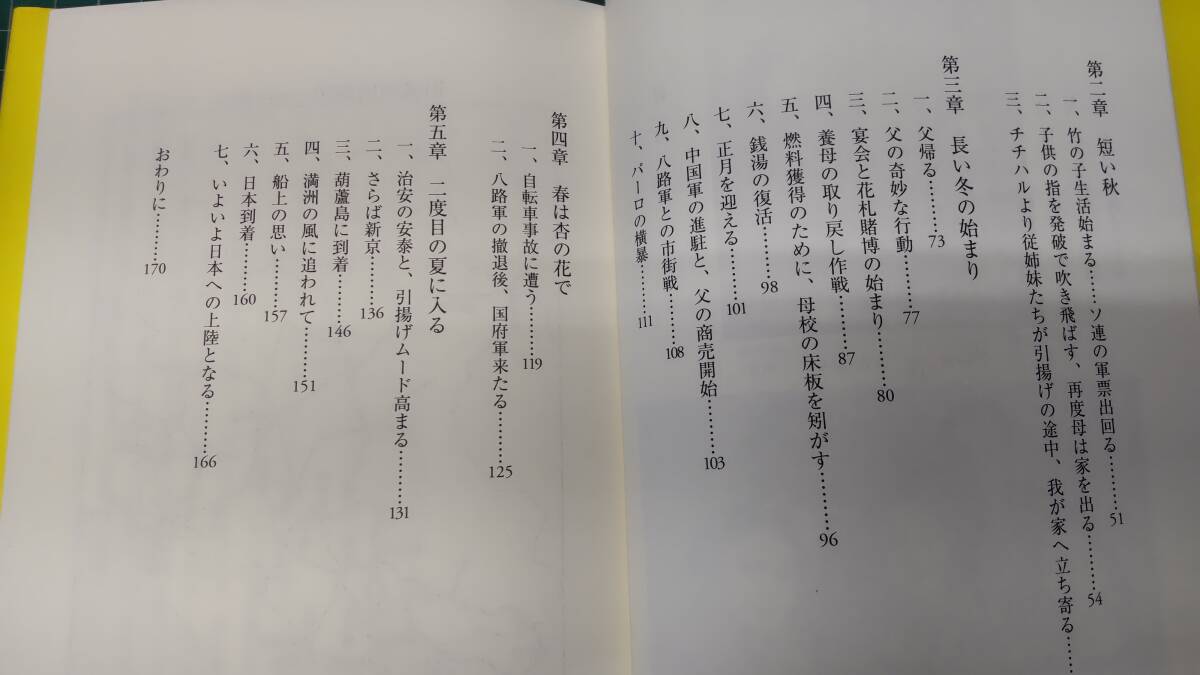 第二章 短い秋
一、竹の子生活始まる……ソ連の軍票出回る………51
二、子供の指を発破で吹き飛ばす、再度母は家を出る………54
三、チチハルより従姉妹たちが引揚げの途中、我が家へ立ち寄る……
第三章 長い冬の始まり
一、父帰る………73
二、父の奇妙な行動………77
三、宴会と花札賭博の始まり………80
四、養母の取り戻し作戦………87
五、燃料獲得のために、母校の床板を剥がす………96
六、銭湯の復活………98
七、正月を迎える………101
八、中国軍の進駐と、父の商売開始………103
九、八路軍との市街戦………108
十、パーロの横暴………111
第四章 春は杏の花で
一、自転車事故に遭う………119
二、八路軍の撤退後、国府軍来たる………125
第五章 二度目の夏に入る
一、治安の安泰と、引揚げムード高まる………131
二、さらば新京………136
三、葫蘆島に到着………146
四、満洲の風に追われて………151
五、船上の思い………157
六、日本到着………160
七、いよいよ日本への上陸となる………166
おわりに………170